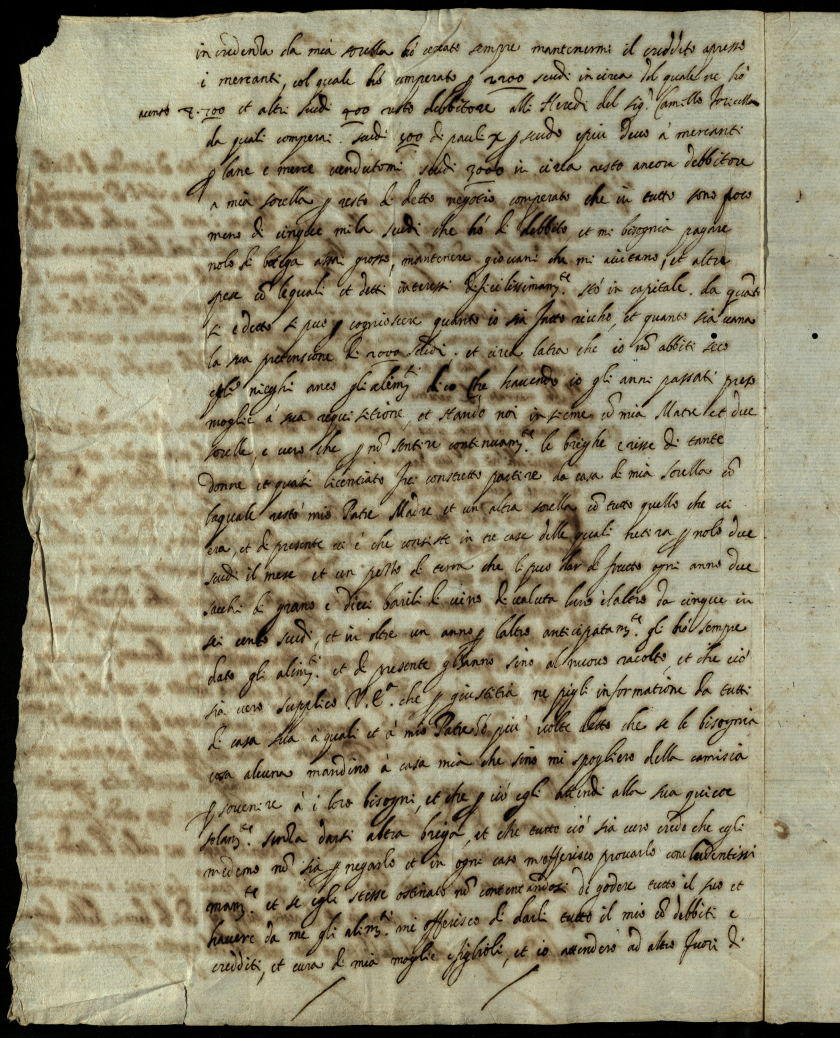 in credenza da mia sorella hò cercato sempre mantenermi il creddito apresso
i mercanti, col quale hò comperato p 2200 scudi in circa del quale ne hò
700 et altri scudi 400 resto debbitore alli Heredi del sig.r Camillo
da quali comperai scudi 500 di pauli X p scudo e più devo à mercanti
p lane e merce vendutomi scudi 3000 in circa resto ancora debbitore
a mia sorella p resto di detto negotio comperato che in tutto sono poco
meno di cinque mila scudi che hò di debbito et mi bisognia pagare
nolo di botega assai grosso, mantenere giovani che mi aiutano, et altre
spese cō lequali et detti interessi dificilissimam.te stò in capitale. da quanto
si è detto si puo p cognioscere quanto io sia fatto riccho, et quanto sia vana
la sua pretensione di 2000 scudi. et circa latra che io nō abbiti seco
e gli nieghi anco gli alim.ti dico che havendo io gli anni passati preso
moglie à sua requisitione, et stando noi insieme cō mia Matre et due
sorelle, e vero che p nō sentire continuam.te le brighe e risse di tante
donne et quasi licenciato fui constretto partire da casa di mia sorella cō
laquale restò mio Patre Madre et un altra sorella cō tutto quello che vi
era, et di presente vi è che consiste in tre case delle quali ne tira p nolo due
scudi il mese et un pezzo di terra che li puo dar di frutto ogni anno due
sacchi di grano e dieci barili di vino di valuta luno e laltro da cinque in
sei cento scudi, et in oltre un anno p laltro anticipatam.te gli hò sempre
dato gli alim.ti et di presente gli anno sino al nuovo racolto, et che ciò
sia vero supplico V. E.a che p giustitia ne pigli informatione da tutti
di casa sua à quali et à mio Patre hò più volte detto che se le bisognia
cosa alcuna mandino à casa mia che sino mi spogliero della camiscia
p sovenire à i loro bisogni, et che p ciò egli attendi alla sua quiete
solam.te senza darsi altra briga, et che tutto ciò sia vero credo che egli
medemo nō sia p negarlo et in ogni caso m'offerisco provarlo concludentissi
mam.te et se egli stesse ostinato nō contentandosi di godere tutto il suo et
havere da me gli alim.ti mi offerisco di darli tutto il mio cō debbiti e
crediti, et cura di mia moglie e figlioli, et io attenderò ad altro fuori di